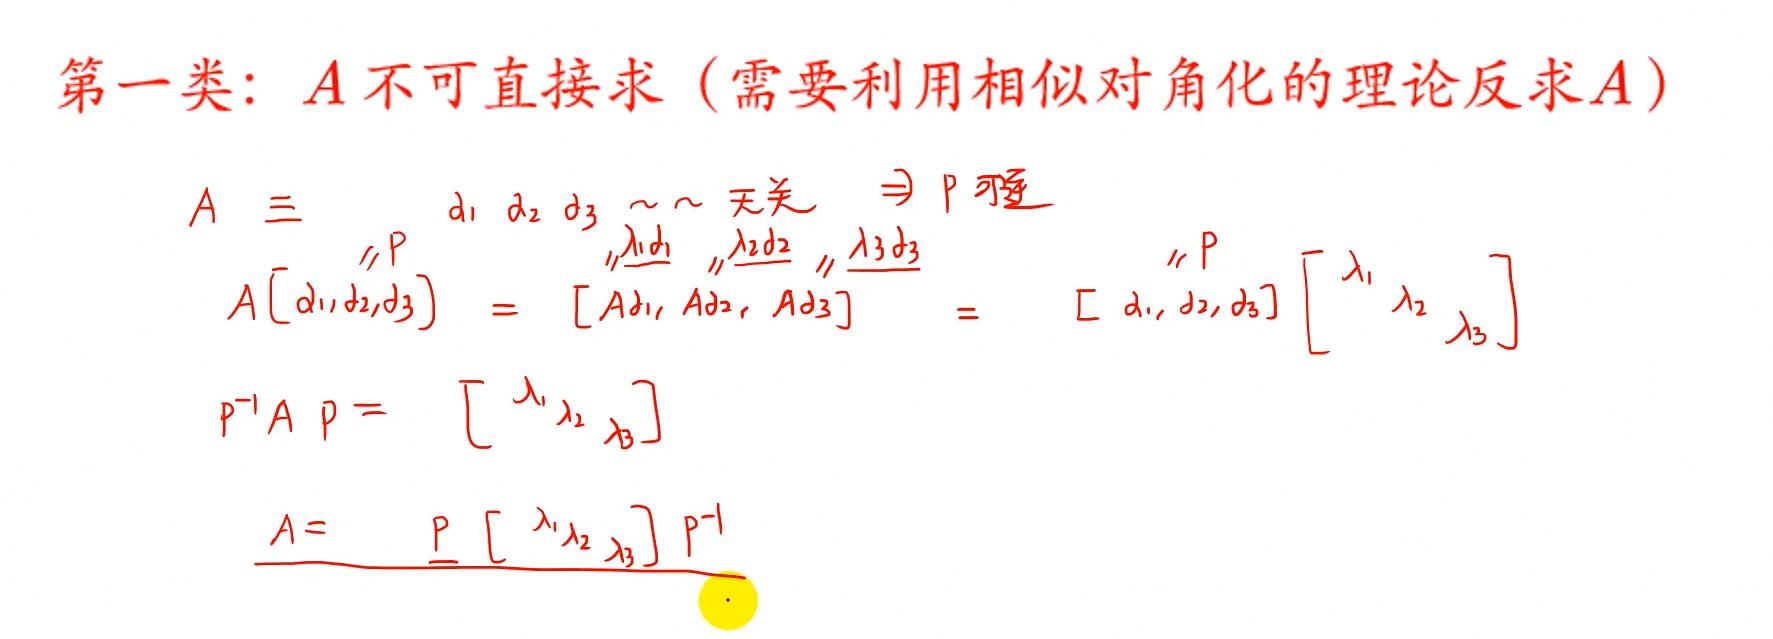 第一类：A不可直接求（需要利用相似对角化的理论反求A）
A 三 α₁ α₂ α₃ ~~无关 ⇒ P可逆
〃P 〃λ₁α₁ 〃λ₂α₂ 〃λ₃α₃ 〃P
A[α₁,α₂,α₃] = [Aα₁, Aα₂, Aα₃] = [α₁, α₂, α₃] [λ₁ λ₂ λ₃]
P⁻¹AP = [λ₁ λ₂ λ₃]
A = P [λ₁ λ₂ λ₃] P⁻¹